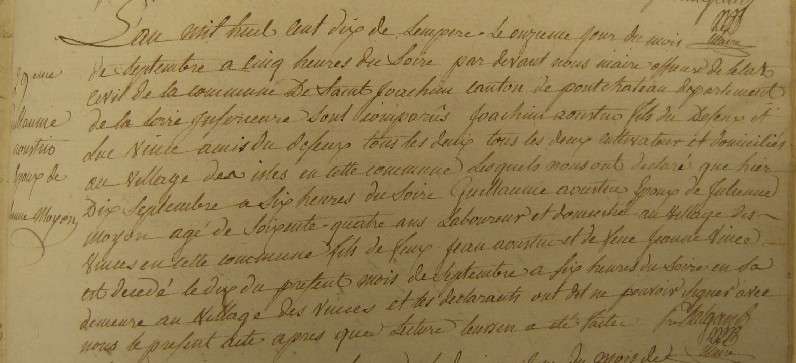 L'an mil huit cent dix de l'empire. Le onzieme jour du mois
de septembre a cinq heures du Soire par devant nous maire officier de letat
Civil de la commune De Saint Joachim canton de pontchateau departement
de la loire Inferieure Sont comparus Joachim aoustin fils du Defeux et
Luc Vince amis du defeux tous les deux tous les deux cultivateur et domiciliés
au village des isles en cette commune Lesquels nous ont declaré que hier
Dix Septembre a Six heures du Soire Guillaume aoustin Epoux de Julienne
moyon agé de Soixente-quatre ans Laboureur et domicilié au village des
Vinces en cette commune fils de feux Jean aoustin et de feue Jeanne Vince
est decedé le dix du present mois de Septembre a Six heures du Soire en Sa
demeure au village des Vinces et les declarants ont dit ne pouvoir signer avec
nous le present acte apres que Lecture leur en a été faite.
maire
29eme
guillaume
aoustin
Epoux de
Moyon
du mois de